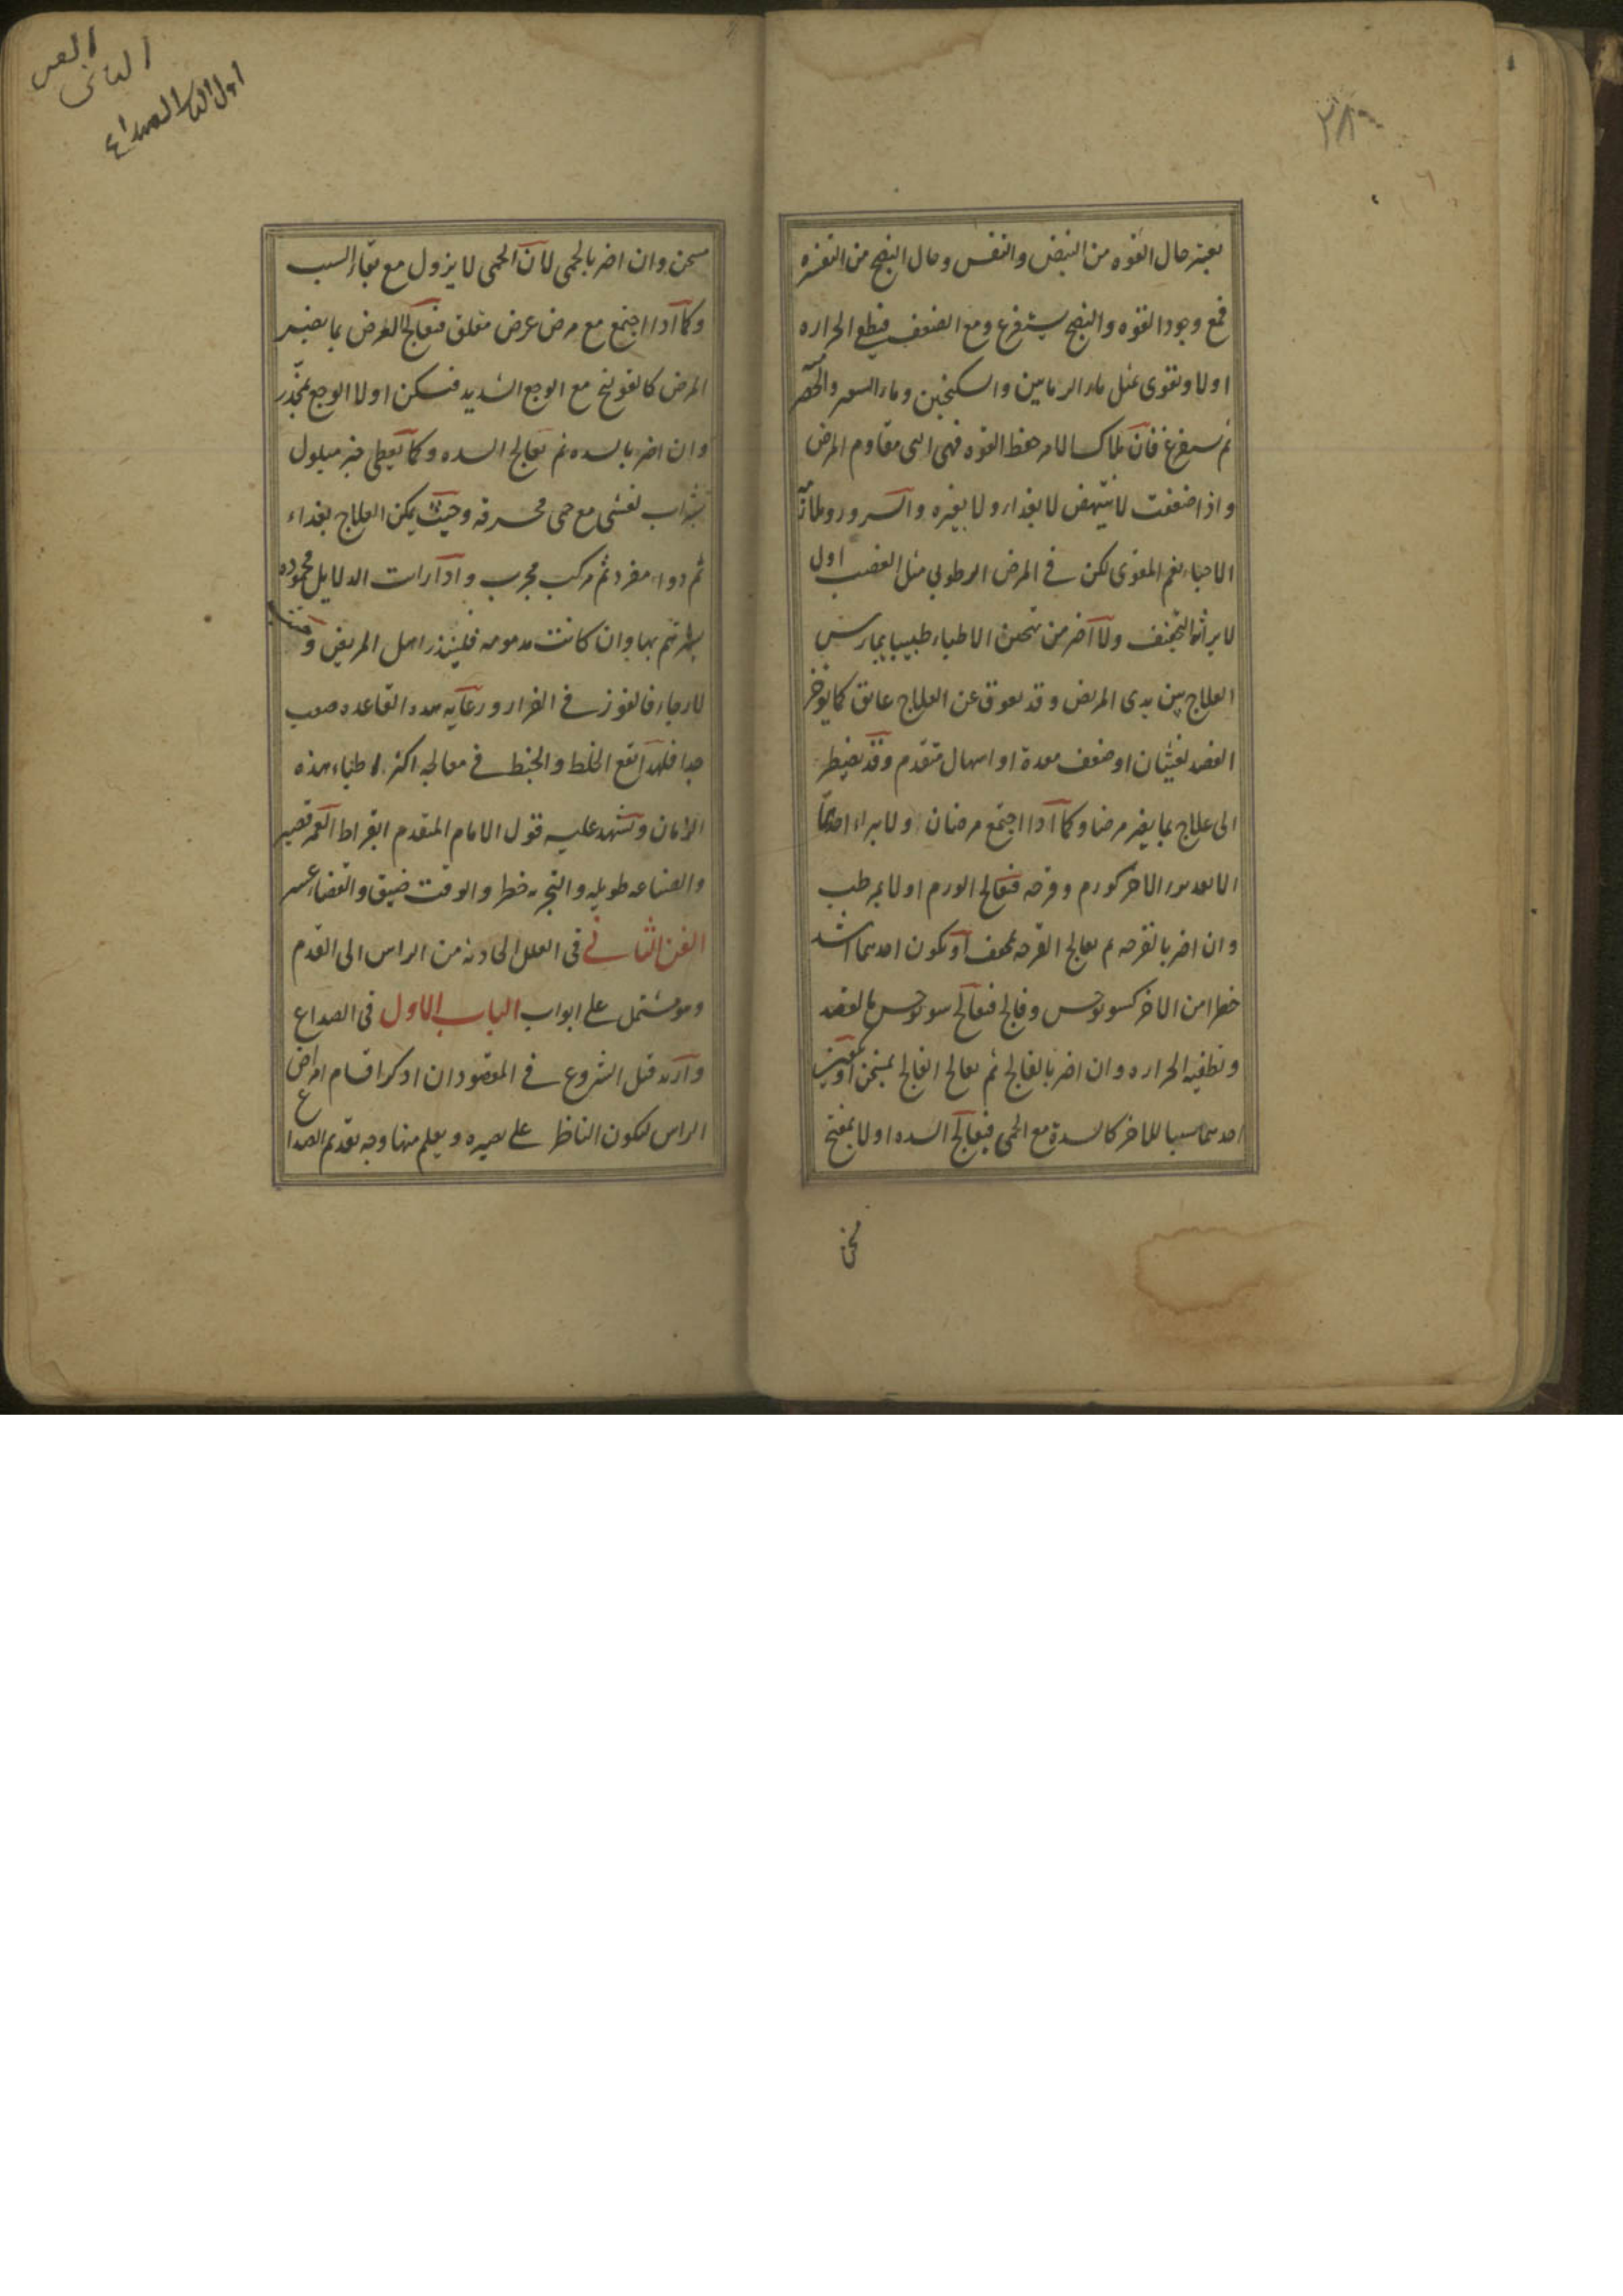 ٢٨٩
يعتبر حال القوه من النبض والنفس وحال النضج من التفسره
فمع وجود القوه والنضج يستفرغ ومع الضعف فيطفي الحراره
اولا ويقوى بمثل ماء الرمانين والسكنجبين وماء الشعير والحصرم
ثم يستفرغ فان ملاك الامر حفظ القوه فهى التى تقاوم المرض
واذا ضعفت لا ينتهض لا بغذاء ولا بغيره والسرور وملاقاة
الاحباء نعم المقوى لكن فى المرض الرطوبي مثل الغضب اولى
لا يراثه التجفف ولا اضر من تمتحن الاطباء طبيبا يمارس
العلاج بين يدى المريض وقد يعوق عن العلاج عائق كما يؤخر
الفصد لغثيان او ضعف معدة او اسهال متقدم وقد يضطر
الى علاج بما يضر مرضا وكما اذا اجتمع مرضان ولا يبراء احدهما
الا بعد برء الاخر كورم وقرحه فتعالج الورم اولا بمرطب
وان اضر بالقرحه ثم يعالج القرحه بمجفف او يكون احدهما اشد
خطرا من الاخر كسونوخس وفالج فتعالج سونوخس بالفصد
وتطفيه الحراره وان اضر بالفالج ثم يعالج الفالج بمسخن او يكون
احدهما سببا للاخر كالسدة مع الحمى فيعالج السده اولا بمفتح
الفن
الثانى
اول الباب الصداع
مسخن وان اضر بالحمى لان الحمى لا يزول مع بقاء السبب
وكما اذا اجتمع مع مرض عرض مقلق فتعالج العرض بما يضر
المرض كالقولنج مع الوجع الشديد فتسكن اولا الوجع بمخدر
وان اضر بالسده ثم تعالج السده وكما يعطى خبز مبلول
بشراب لغشى مع حمى محرقه وحيث يمكن العلاج بغذاء
ثم دواء مفرد ثم مركب مجرب واذا رات الدلايل محموده
يهتم بها وان كانت مذمومه فلينذر اهل المريض
لا رجاء فالفوز فى الفرار ورعايه هذه القاعده صعب
جدا فلهذا يقع الخلط والخبط فى معالجه اكثر اطباء هذه
الازمان وتشهد عليه قول الامام المتقدم ابقراط العمر قصير
والصناعه طويله والتجربه خطر والوقت ضيق والقضاء عسر
الفن الثانى فى العلل الحادثه من الراس الى القدم
وهو مشتمل على ابواب الباب الاول فى الصداع
واريد قبل الشروع فى المقصود ان اذكر اقسام امراض
الراس ليكون الناظر على بصيره ويعلم منها وجه تقديم الصداع